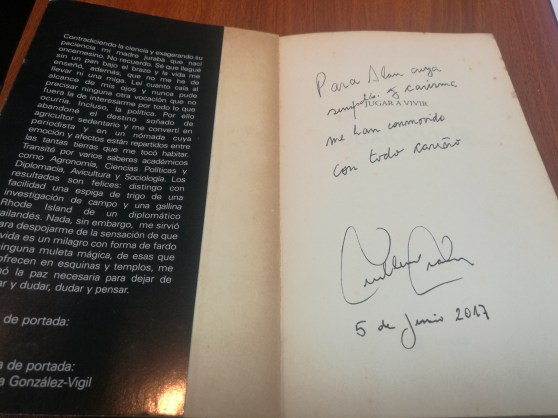 Contradiciendo la ciencia y exagerando su
paciencia mi madre juraba que nací
oncemesino. No recuerdo. Sé que llegué
sin un pan bajo el brazo y la vida me
enseñó, además, que no me he de
llevar ni una miga. Leí cuanto caía al
alcance de mis ojos y nunca pude
precisar ninguna otra vocación que no
fuera la de interesarme por todo lo que
ocurría. Incluso, la política. Por ello
abandoné el destino soñado de
agricultor sedentario y me convertí en
periodista y en un nómada cuya
emoción y afectos están repartidos entre
las tantas tierras que me tocó habitar.
Transité por varios saberes académicos
como Agronomía, Ciencias Políticas y
Diplomacia, Avicultura y Sociología. Los
resultados son felices: distingo con
facilidad una espiga de trigo de una
investigación de campo y una gallina
Rhode Island de un diplomático
tailandés. Nada, sin embargo, me sirvió
para despojarme de la sensación de que
vida es un milagro con forma de fardo
ninguna muleta mágica, de esas que
ofrecen en esquinas y templos, me
la paz necesaria para dejar de
ar y dudar, dudar y pensar.
de portada:
a de portada:
a González-Vigil
Para Alan cuya
simpatía y carisma
JUGAR A VIVIR
me han conmovido
con todo cariño
5 de Junio 2017